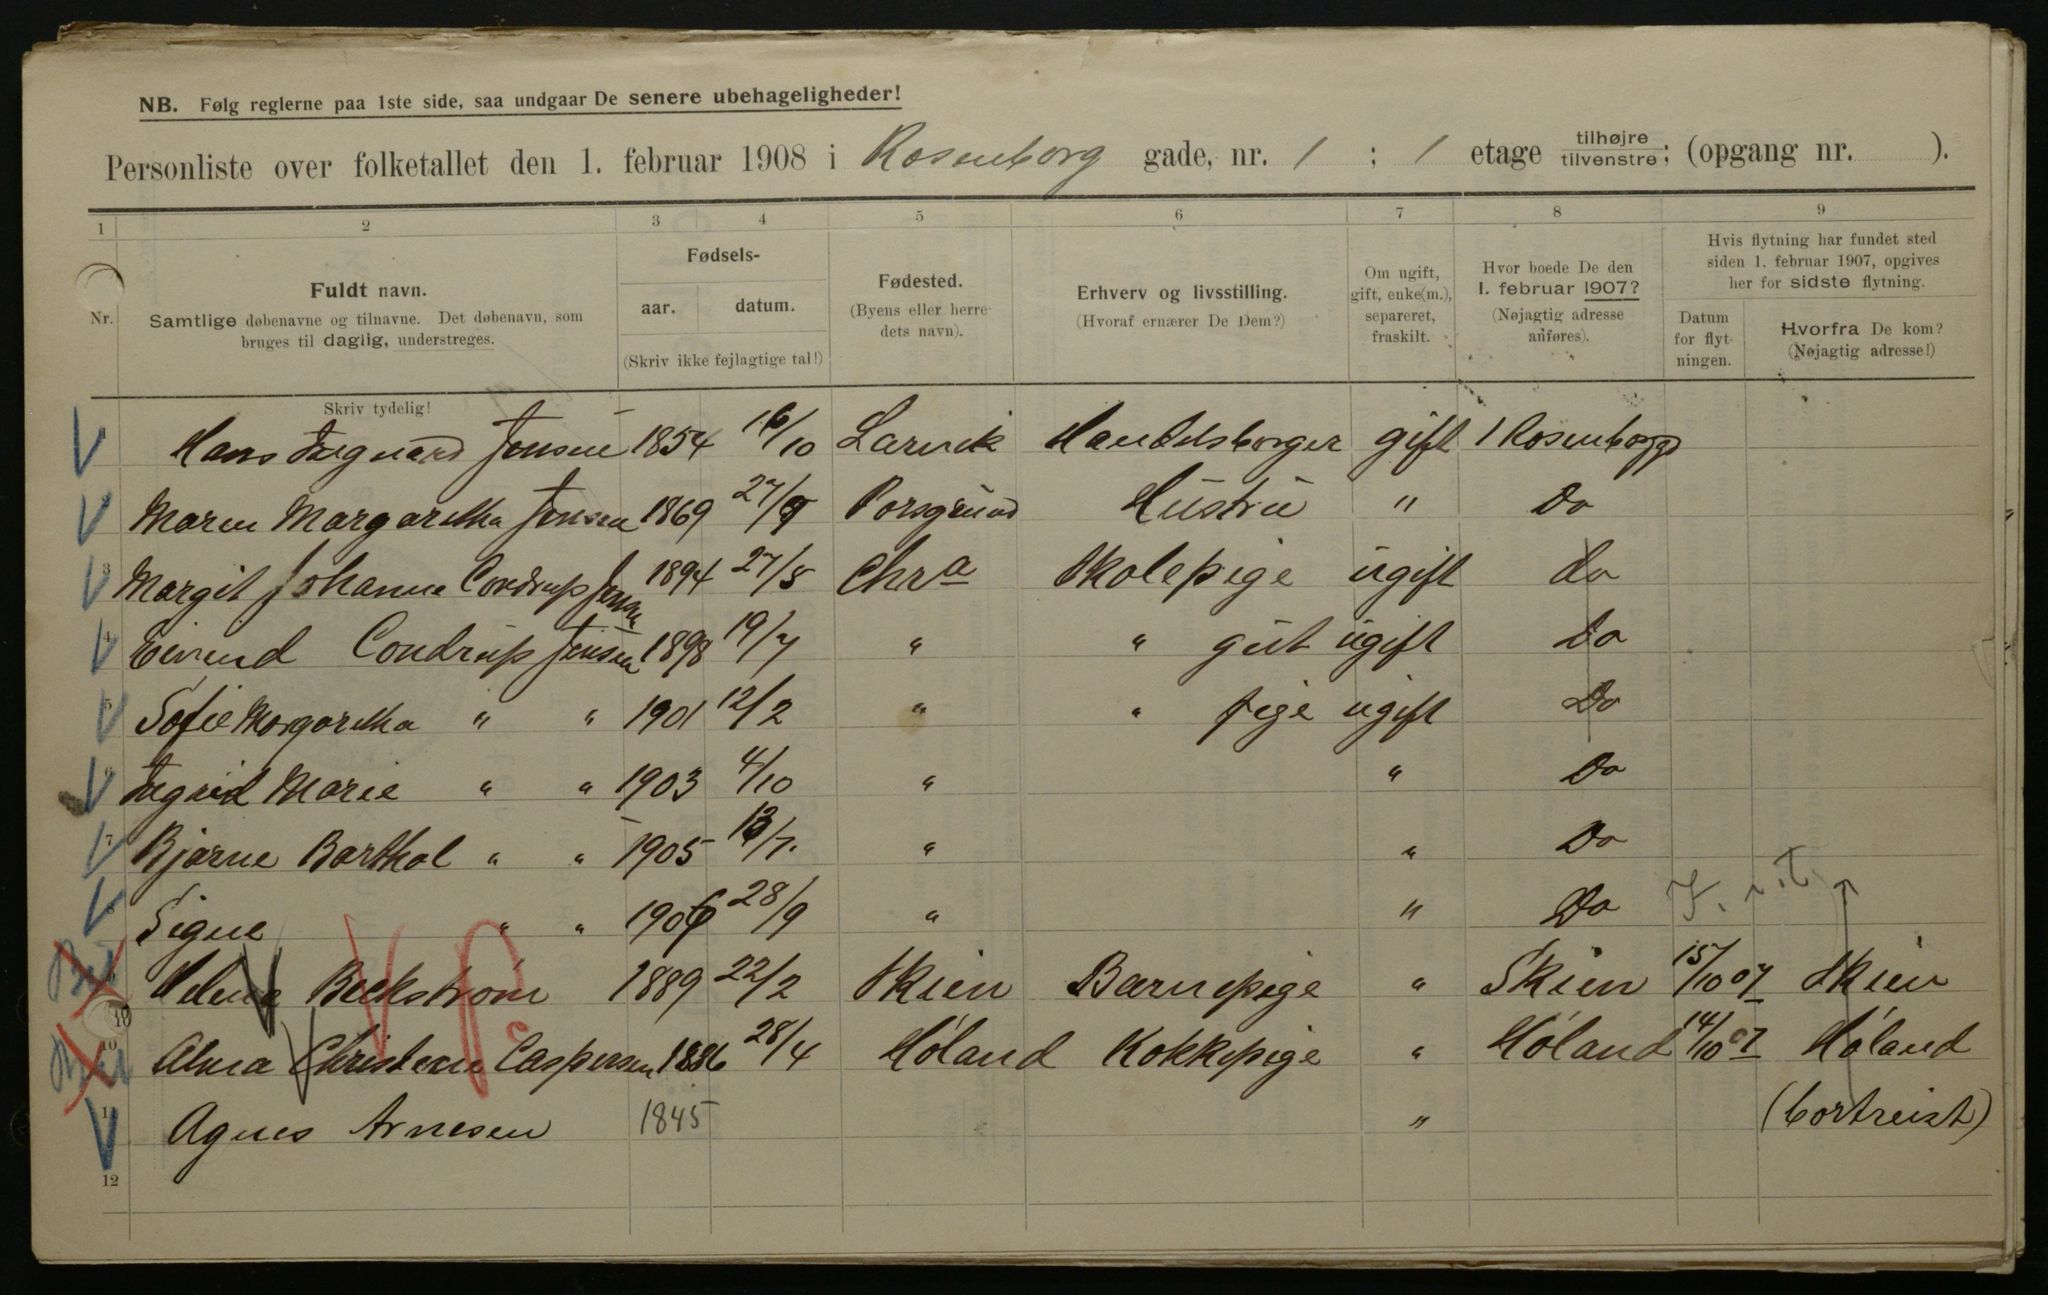 NB. Følg reglerne paa 1ste side, saa undgaar De senere ubehageligheder!
Personliste over folketallet den 1. februar 1908 i Rosenborg gade, nr. 1 ; 1 etage tilhøjre tilvenstre; (opgang nr. ).
1 2 3 4 5 6 7 8 9
Nr.
Fuldt navn.
Samtlige døbenavne og tilnavne. Det døbenavn, som
bruges til daglig, understreges.
Skriv tydelig!
Fødsels-
aar. datum.
(Skriv ikke fejlagtige tal!)
Fødested.
(Byens eller herre-
dets navn).
Erhverv og livsstilling.
(Hvoraf ernærer De Dem?)
Om ugift,
gift, enke(m.),
separeret,
fraskilt.
Hvor boede De den
1. februar 1907?
(Nøjagtig adresse
anføres).
Hvis flytning har fundet sted
siden 1. februar 1907, opgives
her for sidste flytning.
Datum
for flyt-
ningen.
Hvorfra De kom?
(Nøjagtig adresse!)
1 Hans Ingvard Jensen 1854 16/10 Larvik Handelsborger gift 1 Rosenborggd
2 Maren Margaretha Jensen 1869 27/9 Porsgrund Hustru " Do
3 Margit Johanne Condrup Jensen 1894 27/8 Chra Skolepige ugift do
4 Eivind Condrup Jensen 1898 19/7 " " gut ugift Do
5 Sofie Margaretha " " 1901 12/2 " " pige ugift Do
6 Ingrid Marie " " 1903 4/10 " " Do
7 Bjarne Barthol " " 1905 13/7. " " Do
8 Signe " " 1906 28/9 " " Do
9 Beckström 1889 22/2 Skien Barnepige " Skien 15/10 07 Skien
10
10 Alma Christine Caspersen 1886 28/4 Høland Kokkepige " Høland 14/10 07 Høland
11 Agnes Arnesen 1845 " (bortreist)
12